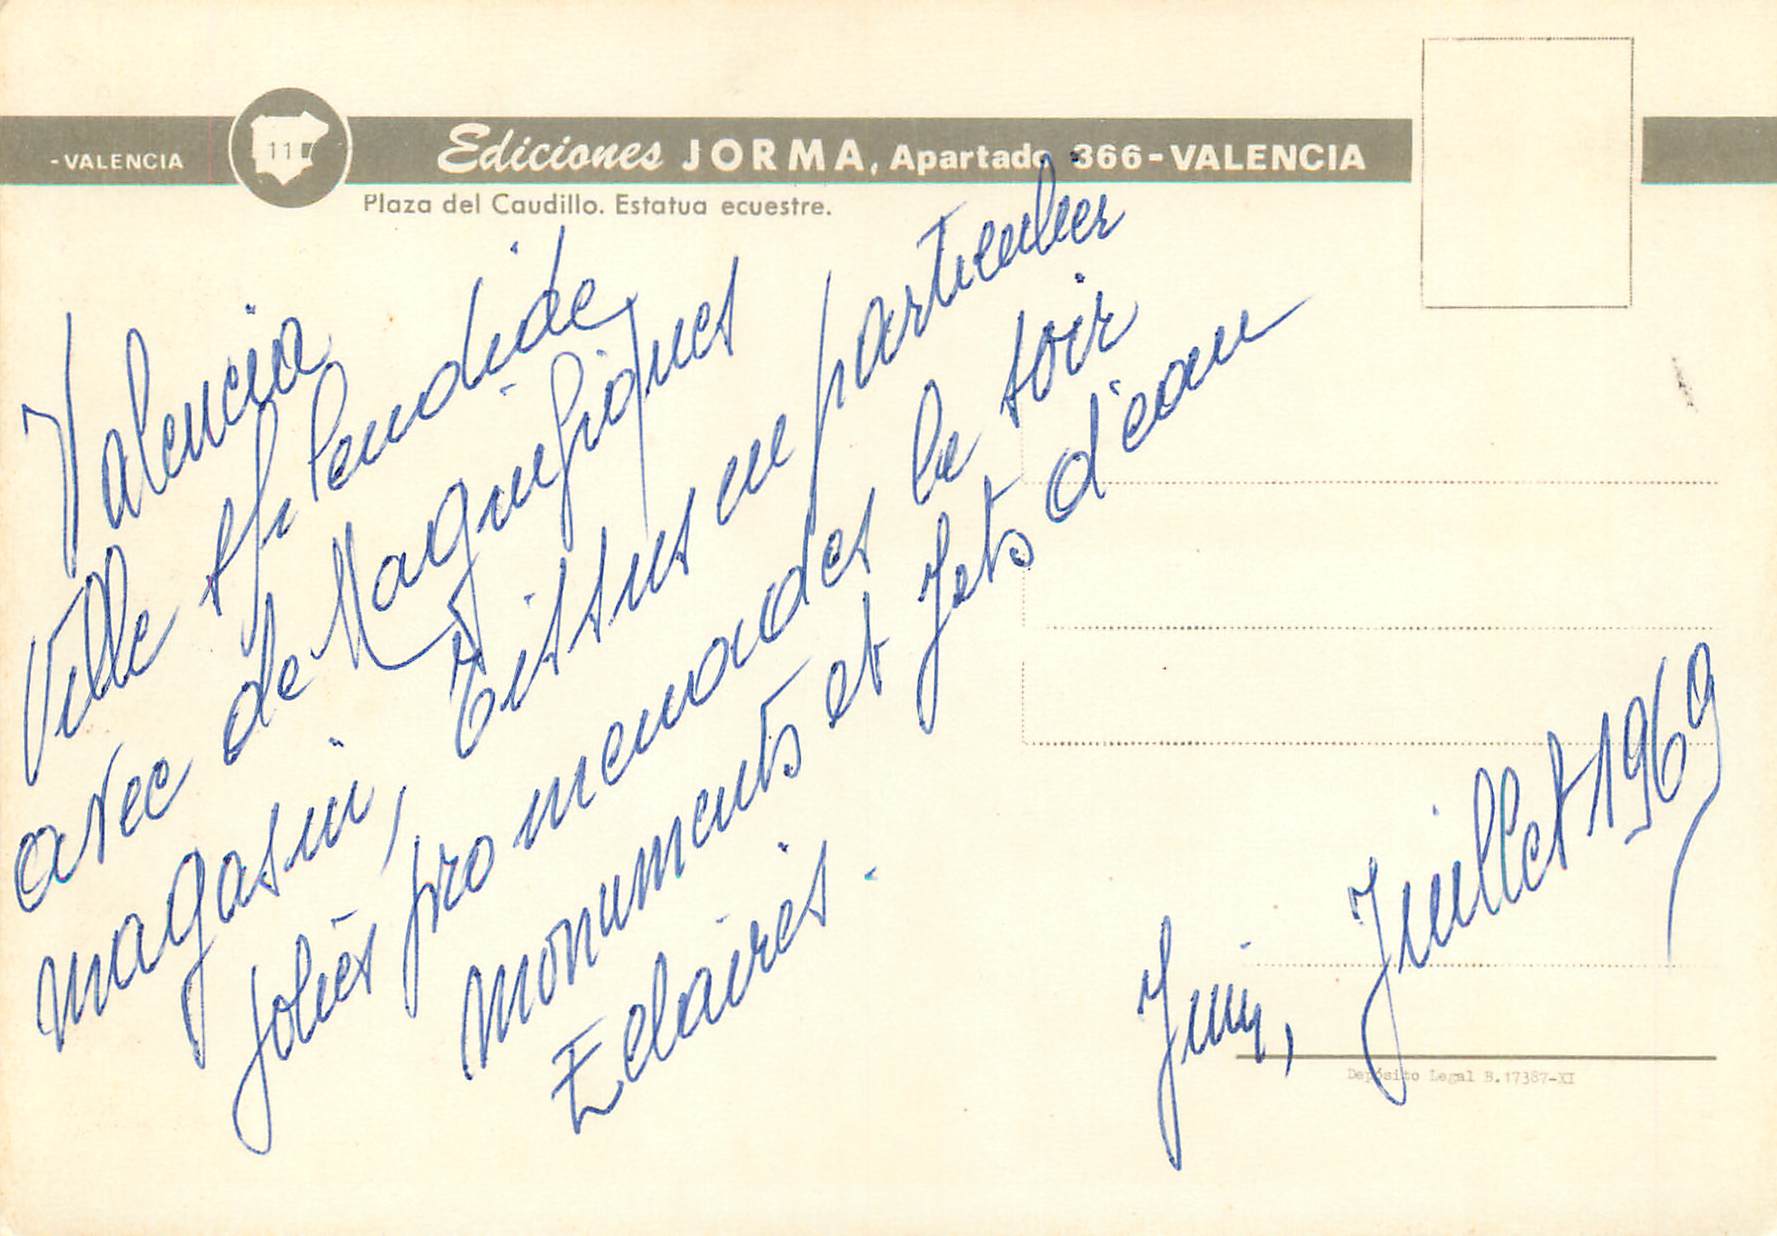 -VALENCIA
11
Ediciones JORMA, Apartado 366-VALENCIA
Plaza del Caudillo. Estatua ecuestre.
Valencia
Ville splendide
avec de Magnifiques
magasin, Tissus en particulier
Jolies promenades le soir
monuments et Jets d'eau
Eclairés.
Juin, Juillet 1969
Depósito Legal B.17387-XI